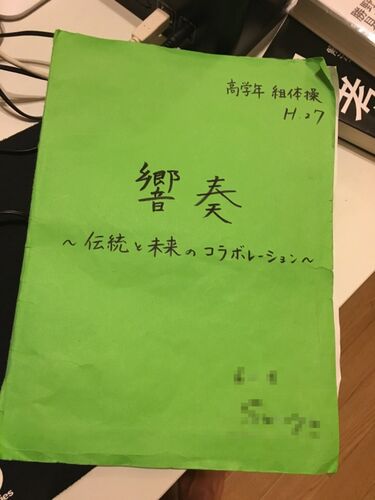 高学年 組体操
H.27
響奏
～伝統と未来のコラボレーション～